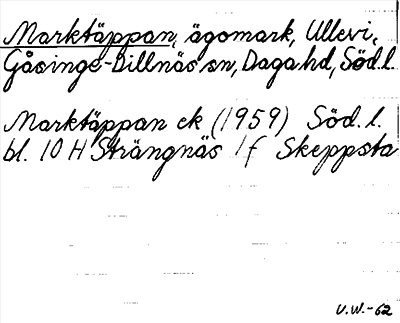 Marktäppan, ägomark, Ullevi,
Gåsinge-Dillnäs sn, Daga hd, Söd.l.
Marktäppan ek (1959) Söd. l.
bl. 10 H Strängnäs 1 f Skeppsta
V.W.-62